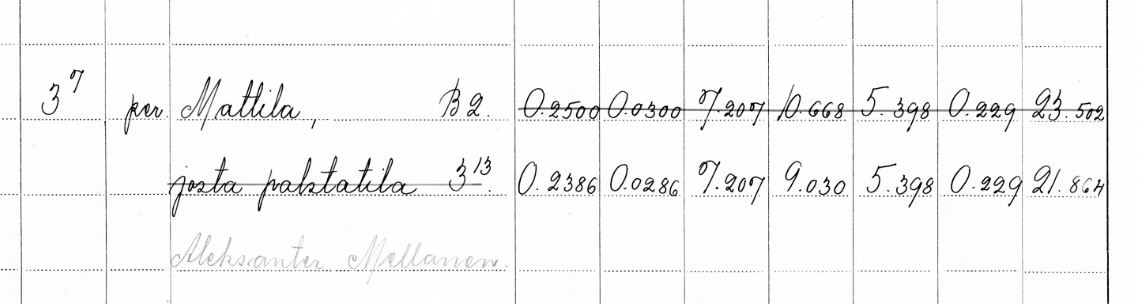 3⁷ per. Mattila, B2. 0.2500 0.0300 7.207 10.668 5.398 0.229 23.502
josta palstatila 3¹³. 0.2386 0.0286 7.207 9.030 5.398 0.229 21.864
Aleksanter Mellanen.